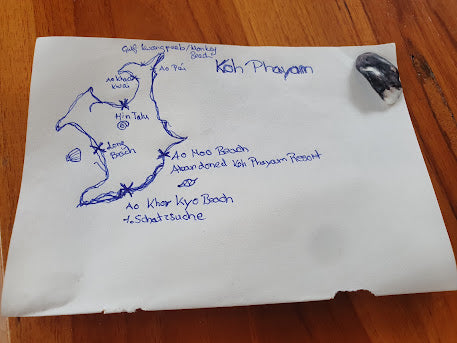 Koh Phayam
Monkey
Beach
Ao Pai
Ao Khao
Kwai
Hin Talu
Long
Beach
Ao Moo Beach
Abandoned Koh Phayam Resort
Ao Khor Kyo Beach
Schatzsuche